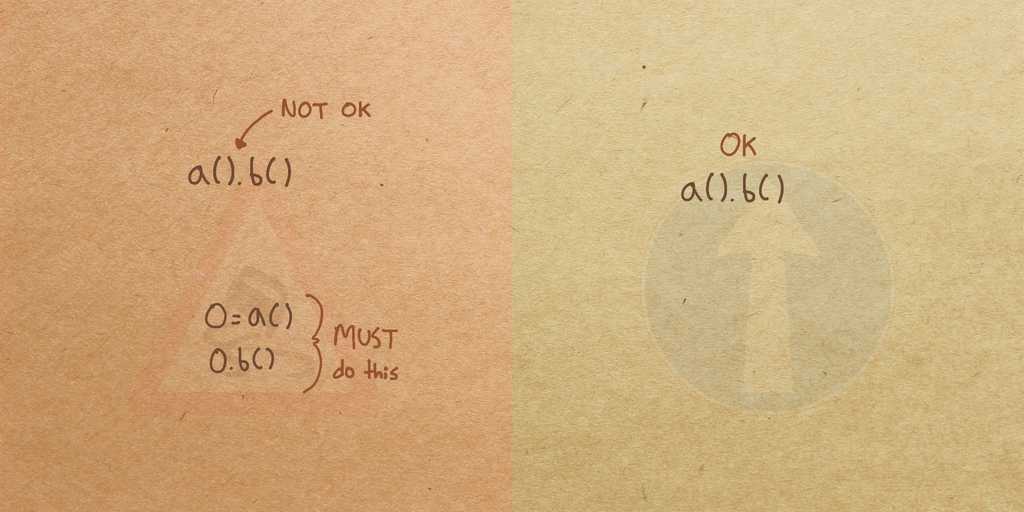 NOT OK
a().b()
O=a()
O.b()
MUST
do this
OK
a().b()